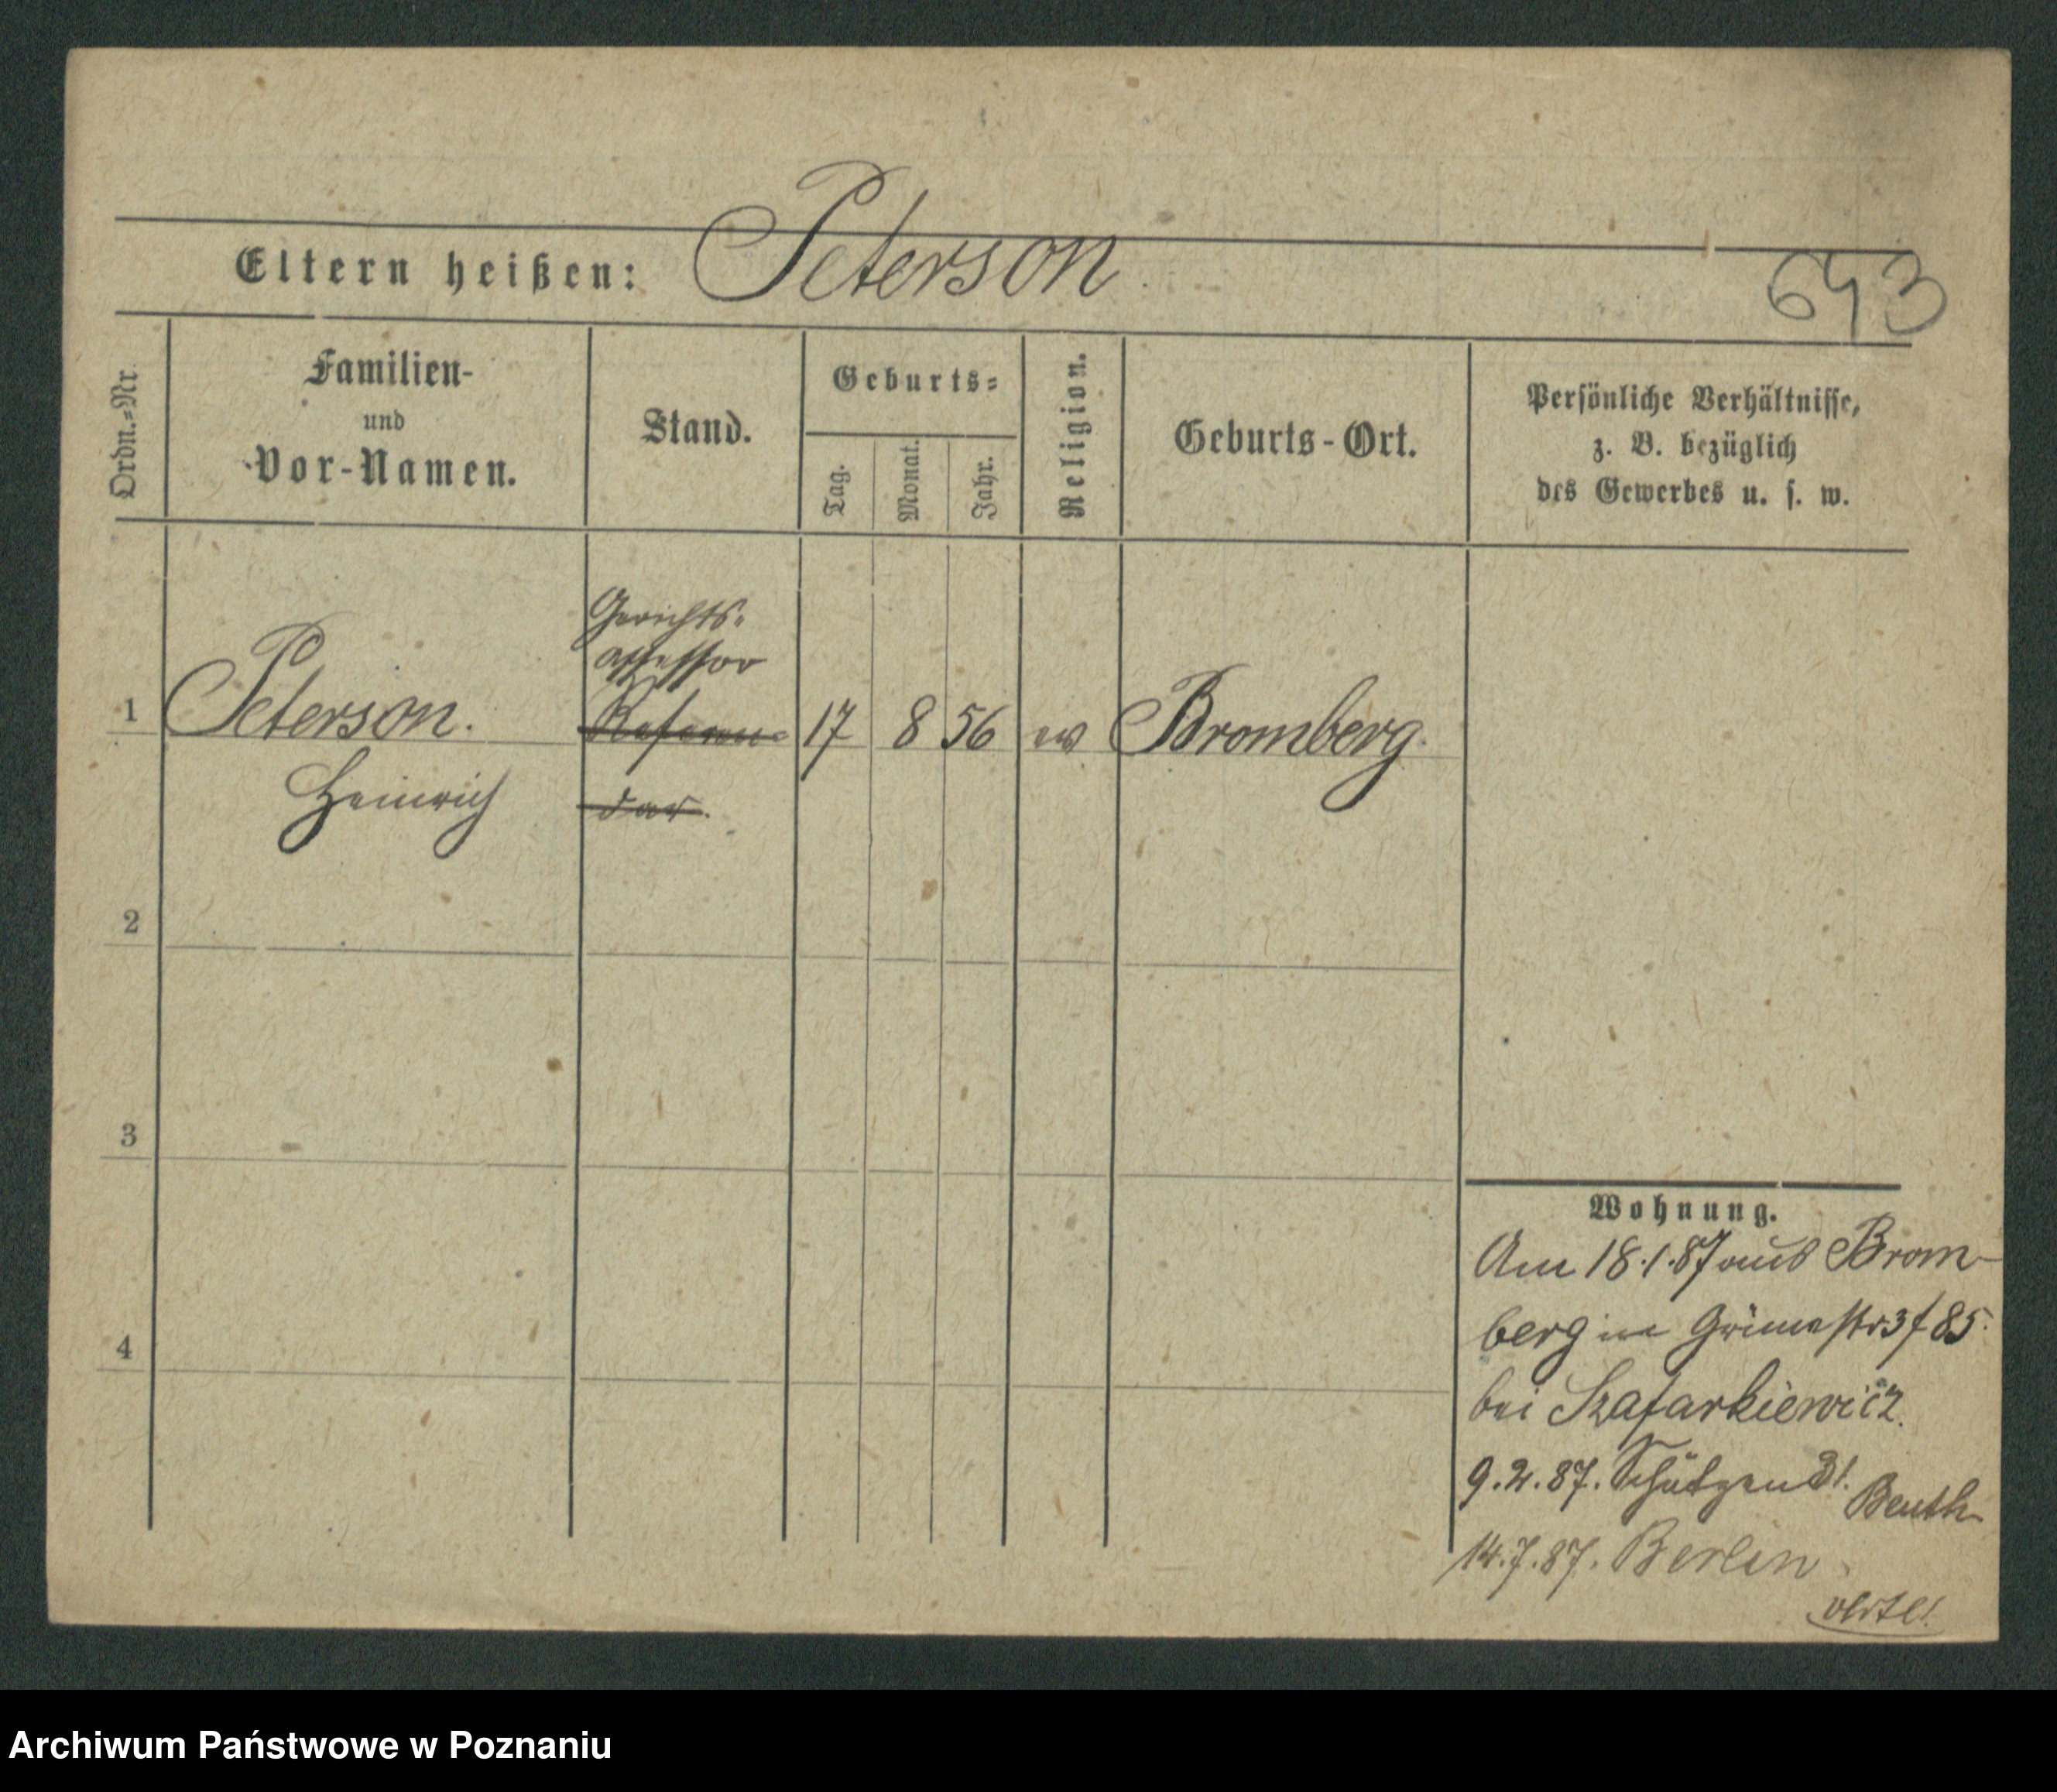 Eltern heißen: Peterson
643
Ordn.-Nr.
Familien-
und
Vor-Namen.
Stand.
Geburts-
Tag.
Monat.
Jahr.
Religion.
Geburts-Ort.
Persönliche Verhältnisse,
z. B. bezüglich
des Gewerbes u. s. w.
Gerichts-
assessor
1 Peterson. Referen- 17 8 56 ev Bromberg.
Heinrich dar.
2
3
4
Wohnung.
Am 18.1.87 aus Brom-
berg in 85.
bei Szafarkiewicz.
9.2.87. Schützen 31. Benth
14.7.87. Berlin
verte!
Archiwum Państwowe w Poznaniu